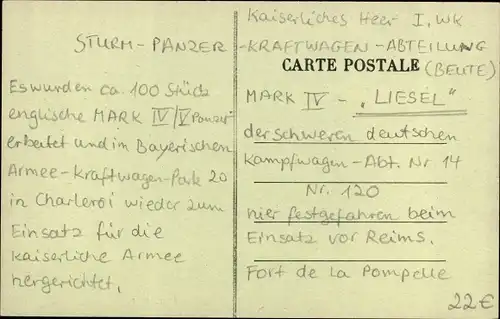 STURM-PANZER
Es wurden ca. 100 Stück
englische MARK IV/V Panzer
erbeutet und im Bayerischen
Armee-Kraftwagen-Park 20
in Charleroi wieder zum
Einsatz für die
kaiserliche Armee
hergerichtet.
Kaiserliches Heer I. WK
-KRAFTWAGEN-ABTEILUNG
CARTE POSTALE (BEUTE)
MARK IV - „LIESEL"
der schweren deutschen
Kampfwagen-Abt. Nr 14
Nr. 120
hier festgefahren beim
Einsatz vor Reims.
Fort de La Pompelle
22€